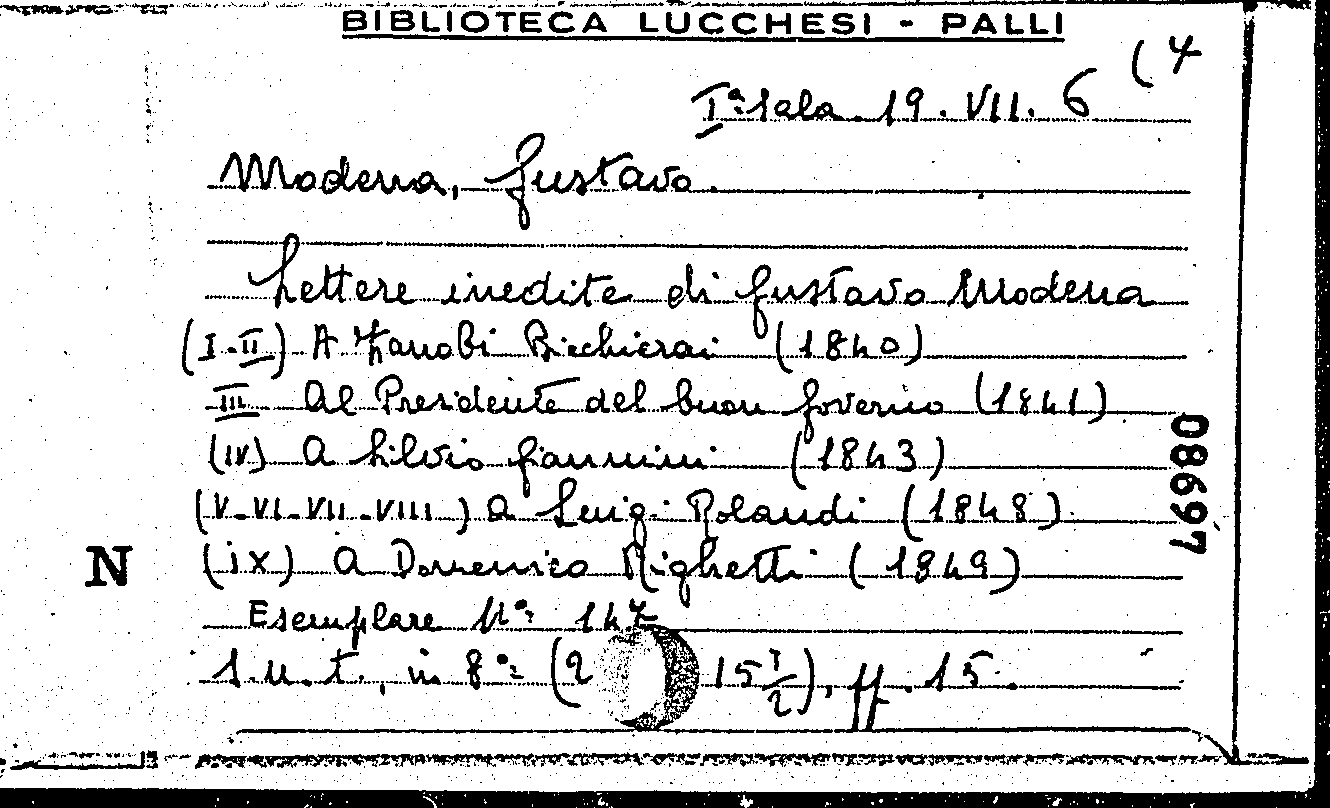 BIBLIOTECA LUCCHESI - PALLI
Iª Sala. 19. VII. 6 (4
Modena, Gustavo.
Lettere inedite di Gustavo Modena
(I-II) A Zanobi Bicchierai (1840)
III Al Presidente del buon Governo (1841)
(IV) A Silvio Giannini (1843)
(V-VI-VII-VIII) a Luigi Rolandi (1848)
(IX) a Domenico Righetti (1849)
Esemplare Nº 147
S.n.t., in 8º (2 15 1/2), ff. 15.
N
08697